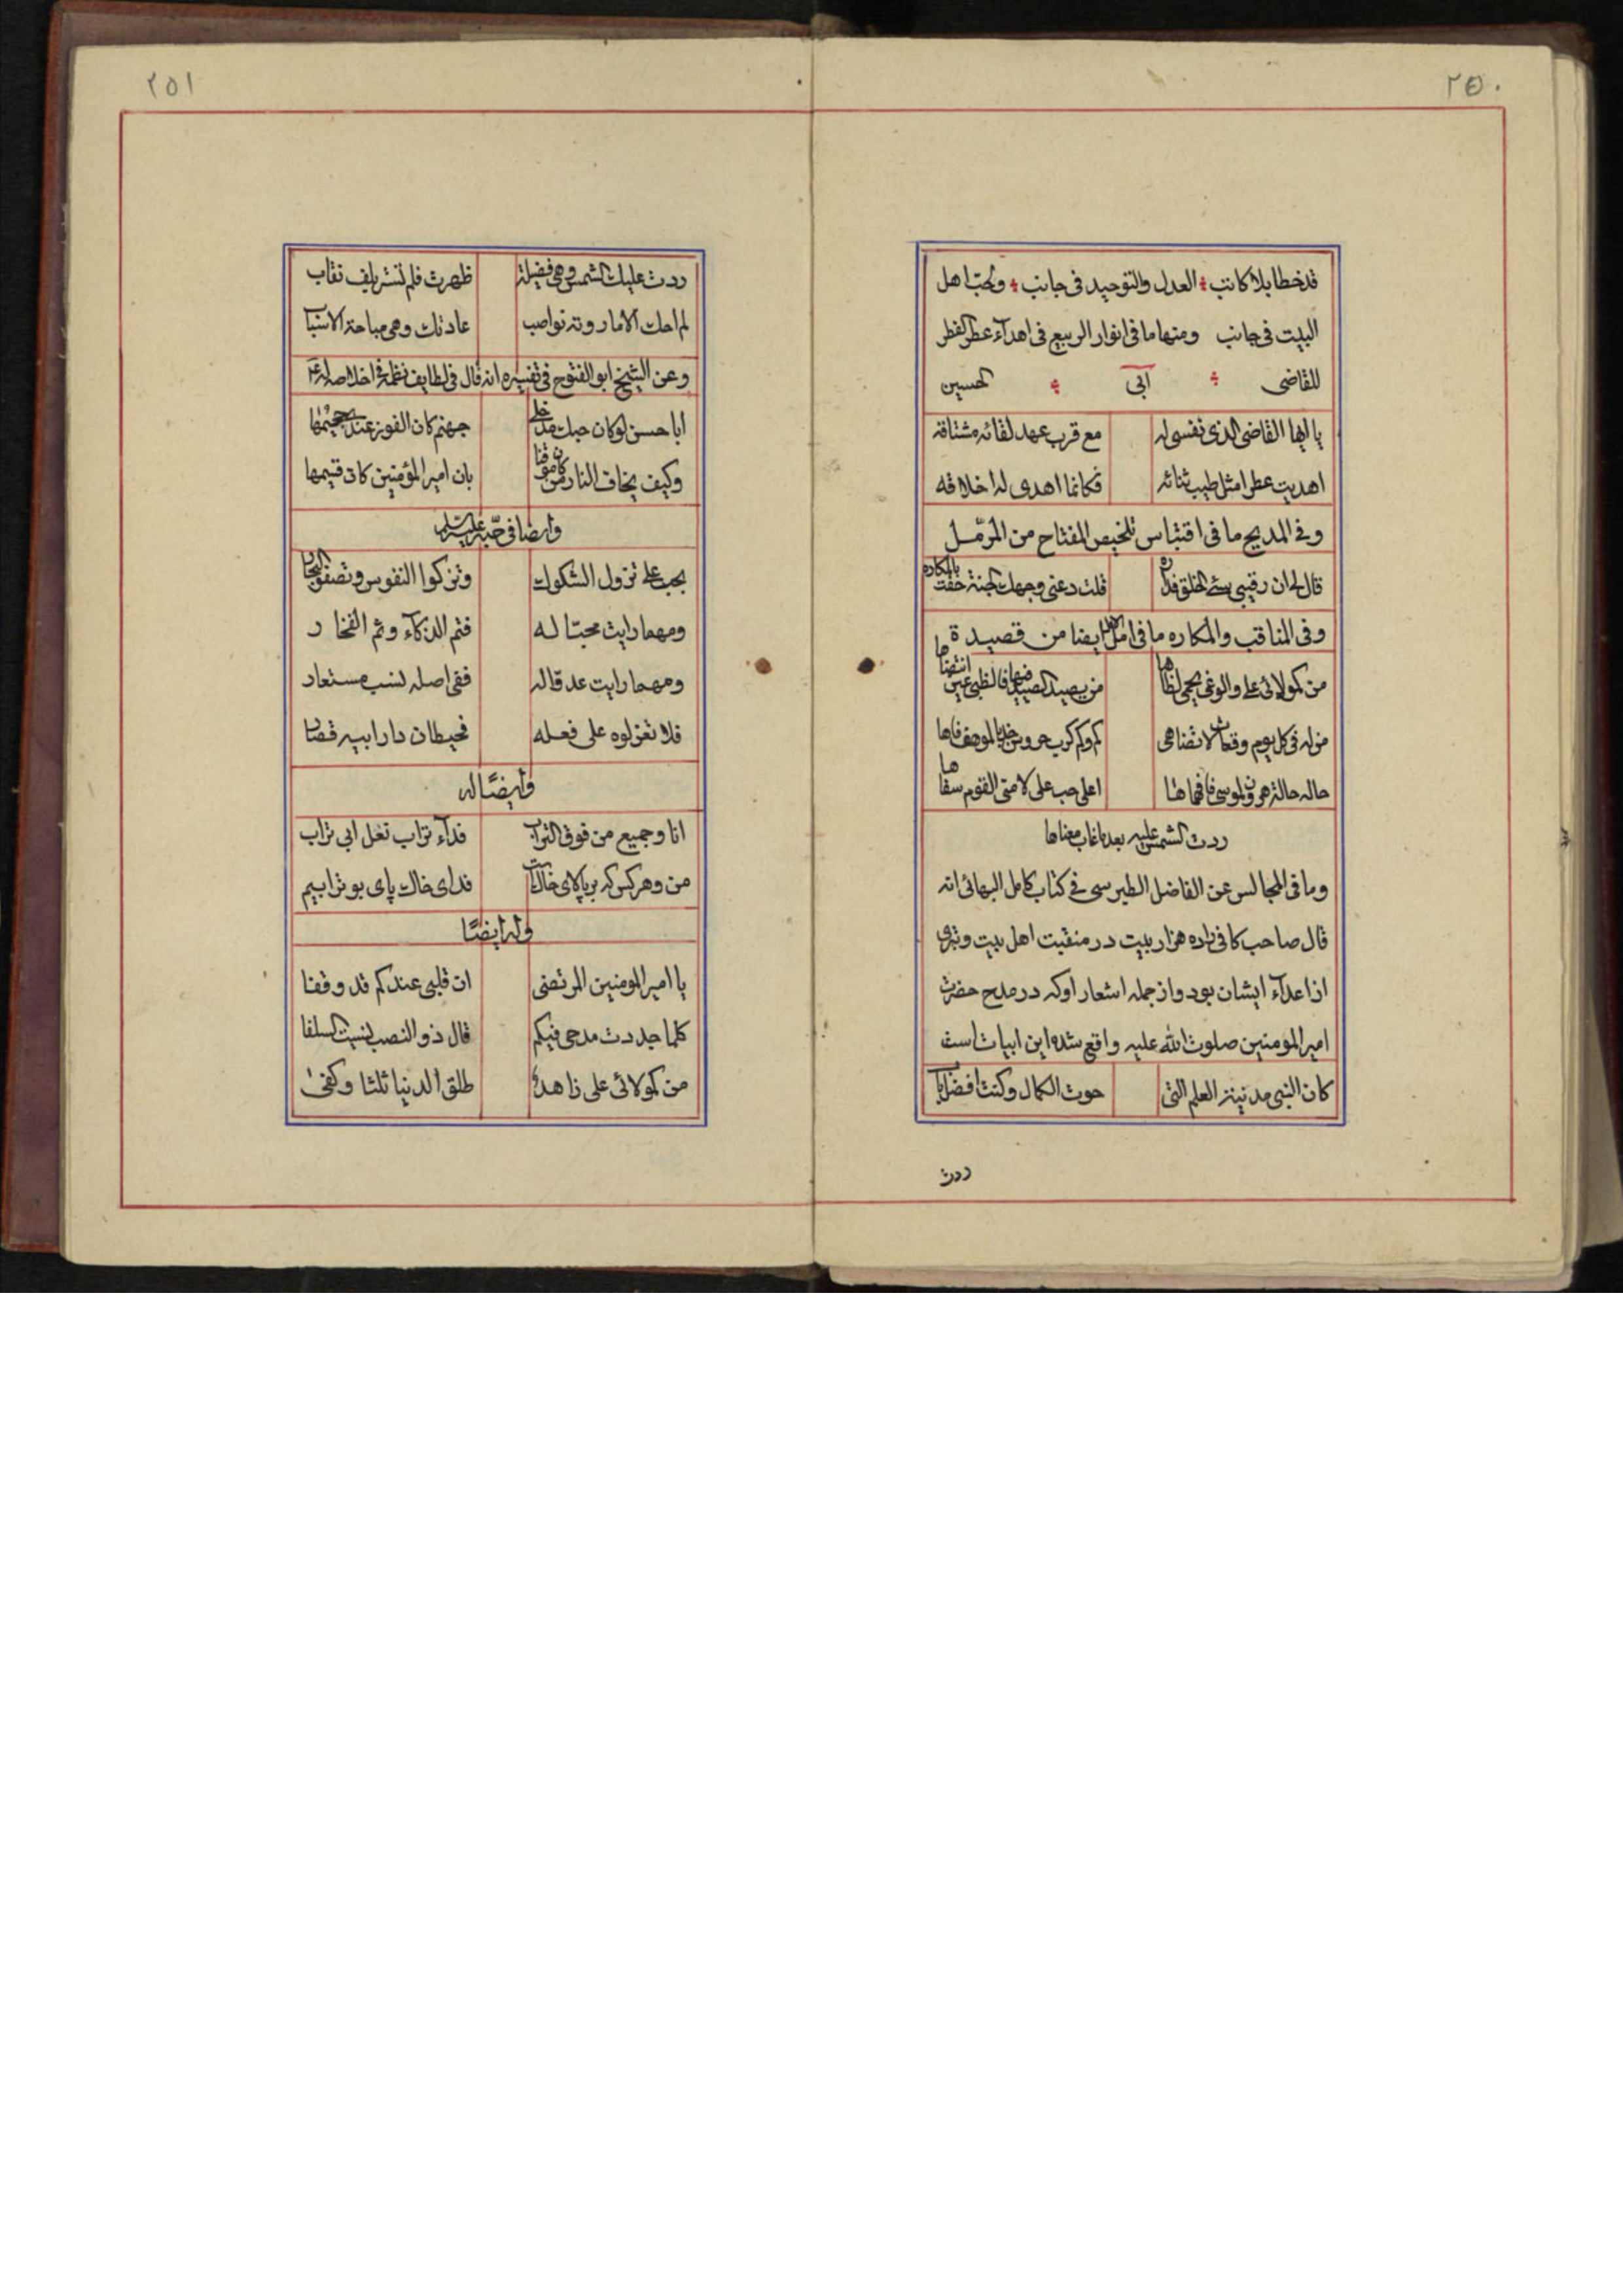 ٢٥٠
قد خطا بلا كاتب العدل والتوحيد فى جانب وحب اهل
البيت فى جانب ومنها ما فى انوار الربيع فى اهداء عطر الفطر
للقاضى ابى الحسين
يا ايها القاضى الذى نفسى له مع قرب عهد لقائه مشتاقه
اهديت عطرا مثل طيب ثنائه فكانما اهدى له اخلاقه
وفى المديح ما فى اقتباس تلخيص المفتاح من المرمل
قال لى ان رقيبى سئ الخلق فداره قلت دعنى وجهك الجنة حفت بالمكاره
وفى المناقب والمكاره ما فى امل ايضا من قصيدة
من كمولائى على والوغى يحمى لظاها من يصيد الصيد فيها بالظبى حين انتضاها
من له فى كل يوم وقعات لا تضاهى كم وكم حرب
حاله حالة هرون لموسى فافهماها اعلى حب على لامنى القوم سفاها
ردت الشمس عليه بعد ما غاب سناها
وما فى المجالس عن الفاضل الطبرسى فى كتاب كامل البهائى انه
قال صاحب كافى را ده هزار بيت در منقبت اهل بيت و تبرى
از اعداء ايشان بود واز جمله اشعار او كه در مدح حضرت
امير المومنين صلوت الله عليه واقع شده اين ابيات است
كان النبى مدينة العلم التى حوت الكمال وكنت افضل باب
ردت
٢٥١
ردت عليك الشمس وهى فضيلة ظهرت فلم تستر بلف نقاب
لم احك الا ما روته نواصب عادتك وهى مباحة الاسباب
وعن الشيخ ابو الفتوح فى تفسيره انه قال فى لطايف نظمه فى اخلاصه له ع
ابا حسن لو كان حبك مدخلى جهنم كان الفوز عندى جحيمها
وكيف يخاف النار من كان موقنا بان امير المؤمنين كان قسيمها
وايضا فى حبه عليه السلم
بحب على تزول الشكوك وتزكوا النفوس وتصفو البحار
ومهما رايت محبا له فثم الذكاء وثم الفخار
ومهما رايت عدوا له ففى اصله نسب مستعار
فلا تعزلوه على فعله فحيطان دار ابيه قصار
وايضًا له
انا وجميع من فوق التراب فداء تراب نعل ابى تراب
من وهر كس كه بر بالاى خاك است فداى خاك پاى بو ترابيم
وله ايضًا
يا امير المومنين المرتضى ان قلبى عندكم قد وقفا
كلما جددت مدحى فيكم قال ذو النصب نسيت السلفا
من كمولائى على زاهد طلق الدنيا ثلثا وكفى